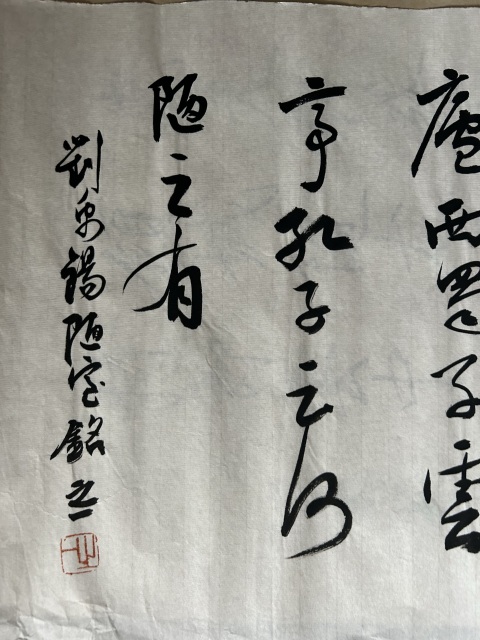 廬西蜀子雲
亭孔子云何
陋之有
劉禹錫陋室銘